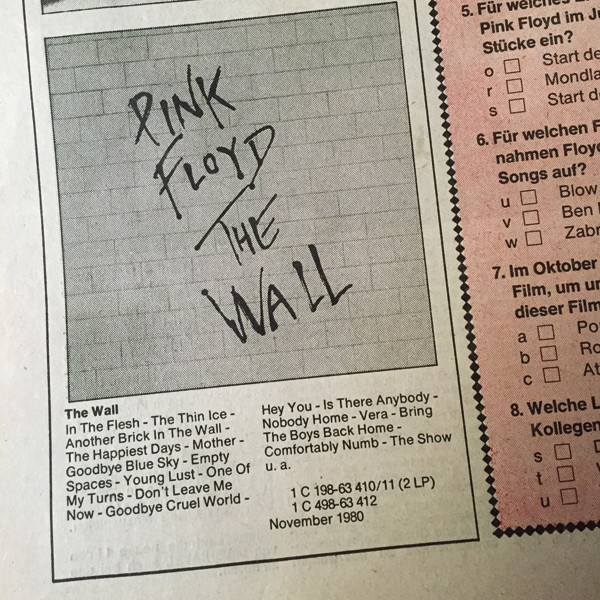 PINK
FLOYD
THE
WALL
The Wall
In The Flesh - The Thin Ice -
Another Brick In The Wall -
The Happiest Days - Mother -
Goodbye Blue Sky - Empty
Spaces - Young Lust - One Of
My Turns - Don't Leave Me
Now - Goodbye Cruel World -
Hey You - Is There Anybody -
Nobody Home - Vera - Bring
The Boys Back Home -
Comfortably Numb - The Show
u. a.
1 C 198-63 410/11 (2 LP)
1 C 498-63 412
November 1980
5. Für welches
Pink Floyd im
Stücke ein?
o Start
r
s Start
6. Für welchen
nahmen
Songs auf?
u Blow
v Ben
w
7. Im Oktober
Film, um
dieser Film
a
b
c
8. Welche
Kollegen
s
t
u